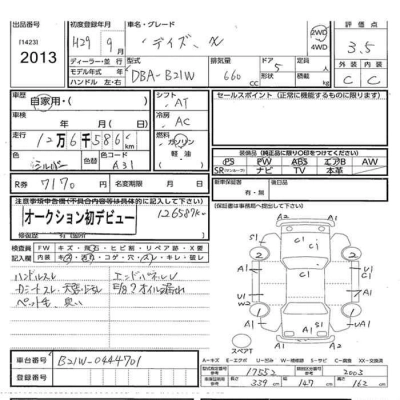 出品番号 初度登録年月 車名・グレード 2WD 4WD 評価点
[1423] H29 9月 デイズ X 3.5
2013 ディーラー・並行 型式 排気量 ドア 外装 内装
モデル年式 DBA-B21W 660 5 C C
ハンドル 左・右
車歴 自家用・( ) シフト AT セールスポイント(正常に機能するものに限ります。)
車検 年 月( ) 冷房 AC
走行 12万6千586 燃料 ガソリン 軽油
色 シルバー 色替 カラーコード A31 装備品(純正品に限り○印をつけてください。)
PS PW ABS エアB AW
SR(サンルーフ) ナビ TV 本革
R券 7170 名変期限 年 月 日 新車保証書 有・無 後日品
注意事項申告欄(不具合内容等は具体的に) (保証書は事務局へ提出して下さい。)
オークション初デビュー 126587km
修復歴
検査員記入欄 FW キズ・飛石・ヒビ割・リペア跡・X要
内装 キズ・汚れ・コゲ・穴・スレ・キレ・破レ
ハンドルスレ エンドパネルU
ペットも 臭い
A1 C1 A1
C1 Ci
A1 C1 A1
U1 U1
W2
A1 A1
A1 S1
スペアT
A1
車台番号 B21W-0444701 A-キズ E-エクボ U-凹み W-補修跡 S-サビ C-腐食 XX-交換済
登録番号 型式指定番号 17552 類別区分番号 2003
車両証寸法 長さ 339cm 幅 147cm 高さ 162cm